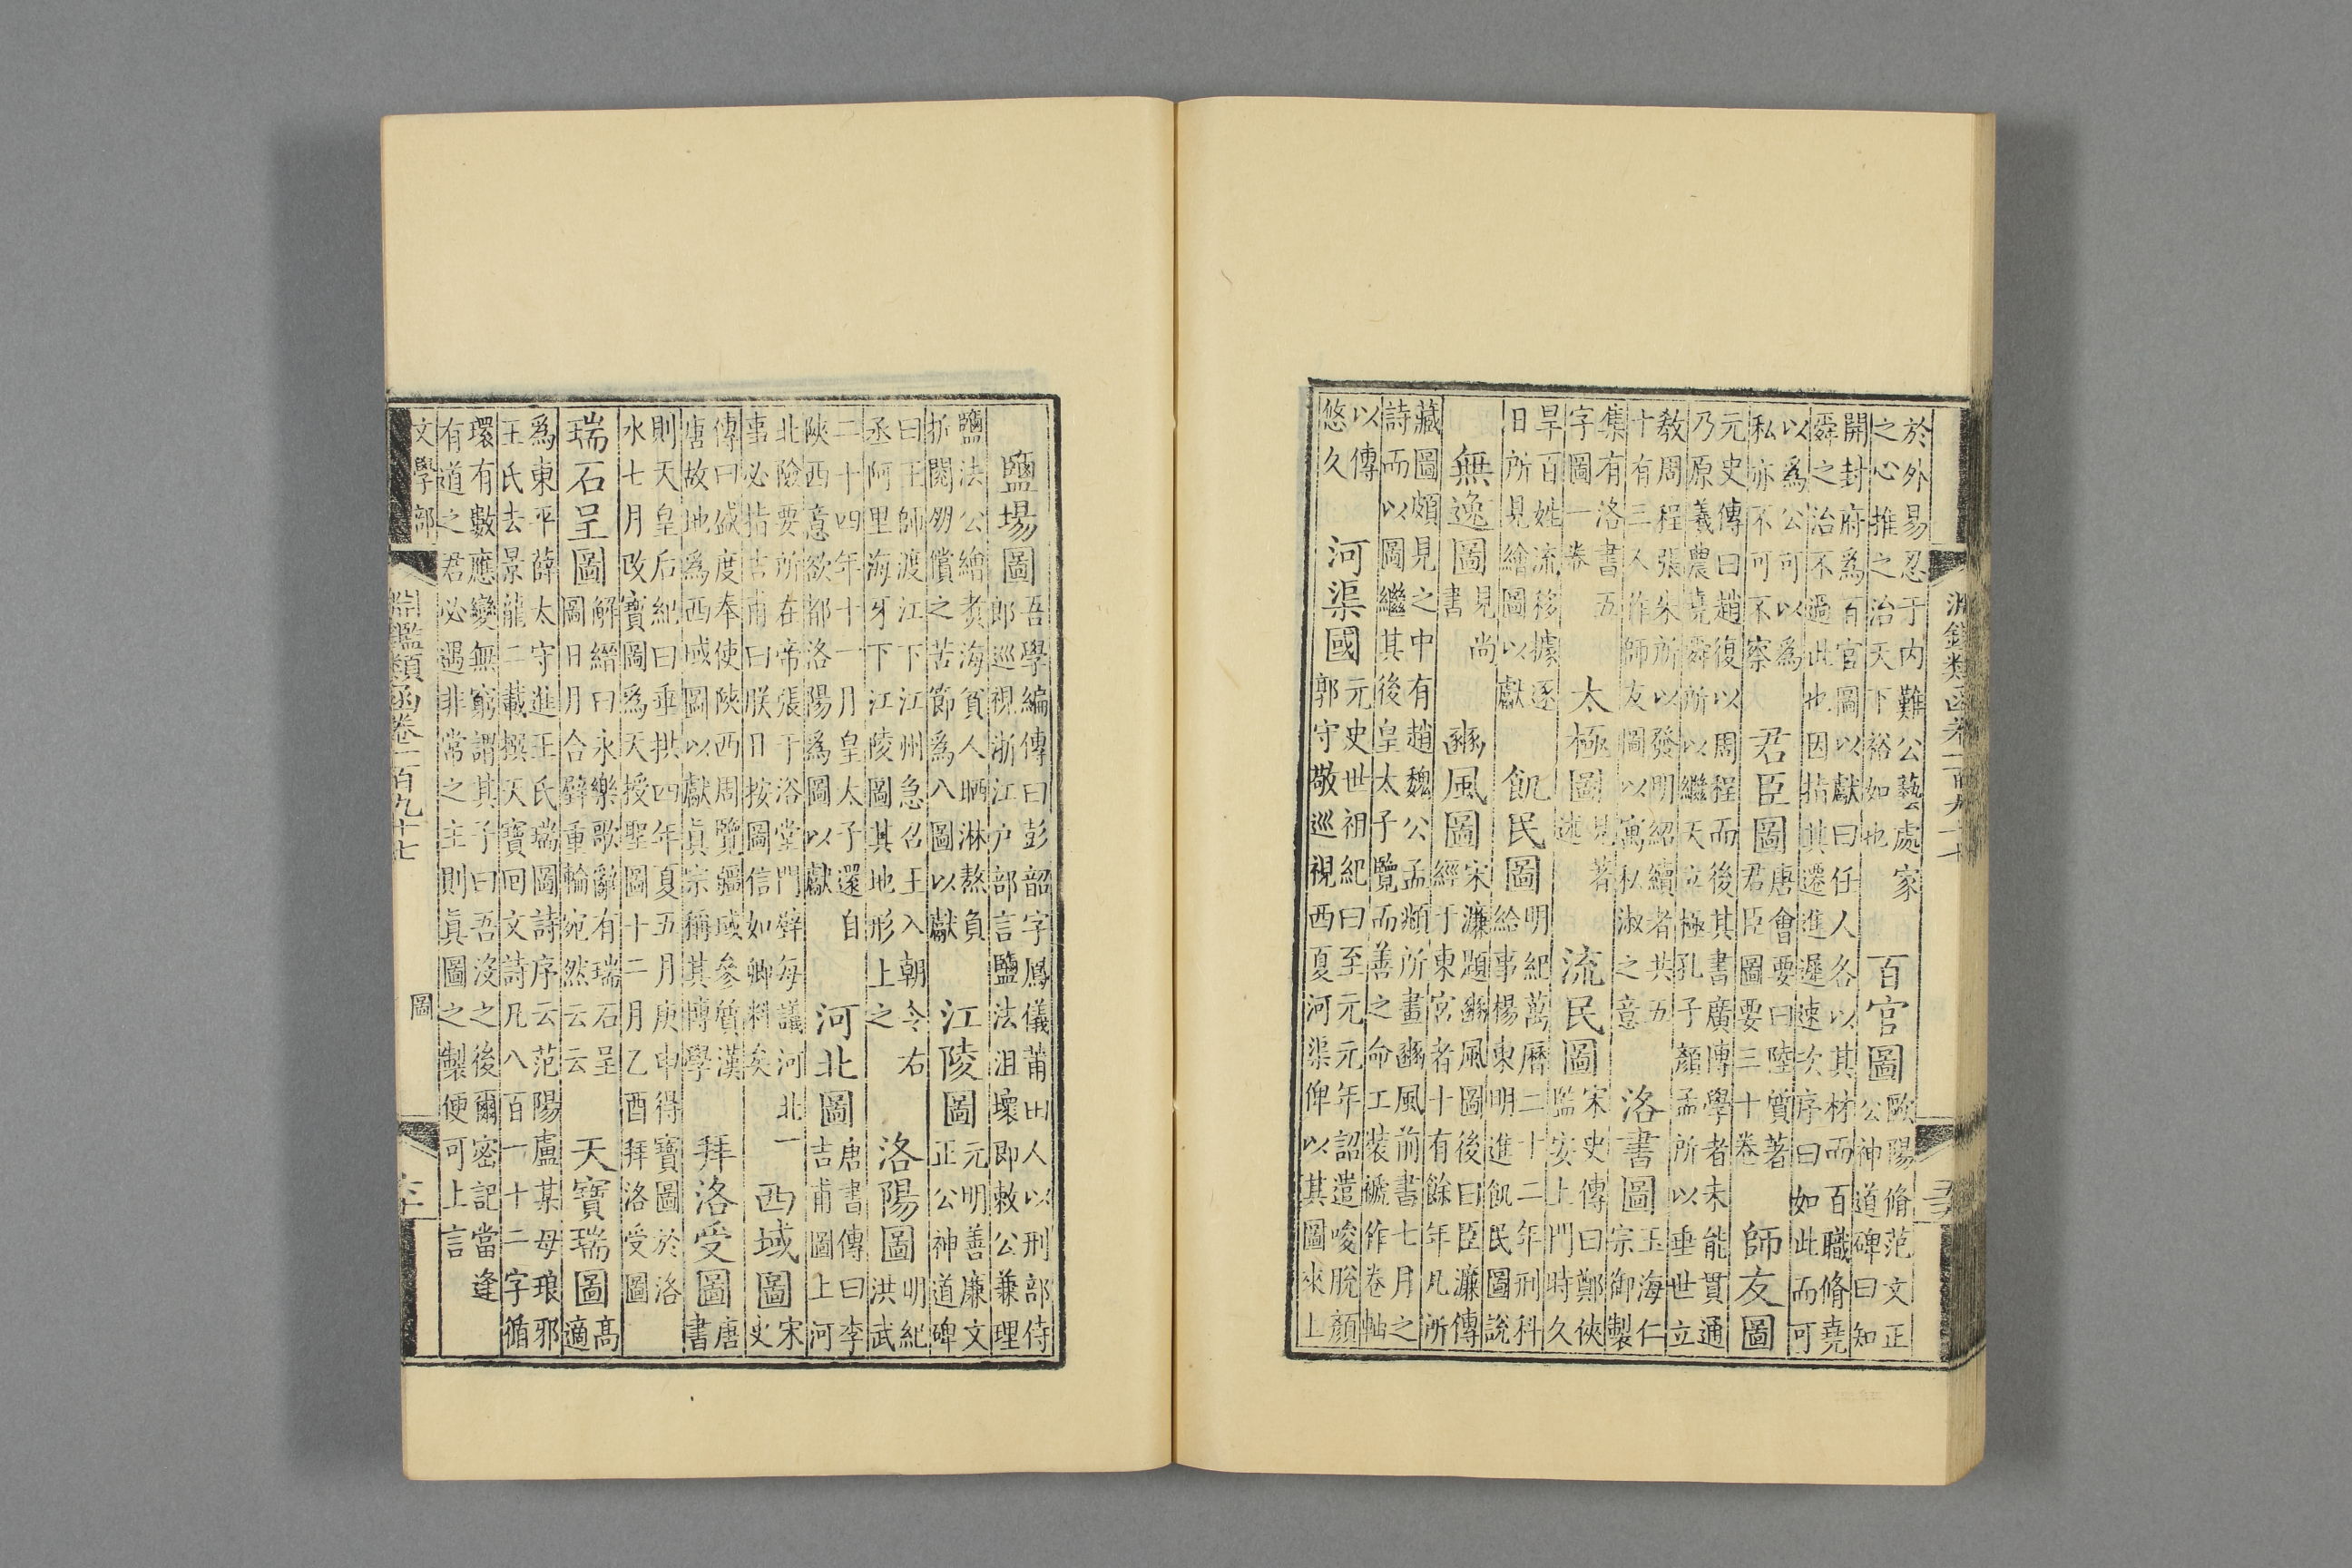 淵鑑類函卷二百九十七
於外易忍于内難公藝處家之心推之治天下裕如也　百官圖　歐陽脩范文正公神道碑曰知
開封府為百官圖以獻曰任人各以其材而百職脩堯舜之治不過此也因指其遷進遲速次序曰如此而可
以為公可以為私亦不可不察　君臣圖　唐會要曰陸質著君臣圖要三十卷　師友圖
元史傳曰趙復以周程而後其書廣傳學者未能貫通乃原羲農堯舜所以繼天立極孔子顏孟所以垂世立
教周程張朱所以發明紹續者共五十有三人作師友圖以寓私淑之意　洛書圖　玉海仁宗御製
集有洛書五字圖一卷　太極圖　見著述　流民圖　宋史傳曰鄭俠監安上門時久
旱百姓流移據逐日所見繪圖以獻　飢民圖　明紀萬曆二十二年刑科給事楊東明進飢民圖說
無逸圖　見尚書　豳風圖　宋濂題豳風圖後曰臣濂傳經于東宮者十有餘年凡所
藏圖頗見之中有趙魏公孟頫所畫豳風前書七月之詩而以圖繼其後皇太子覽而善之命工裝褫作卷軸
以傳悠久　河渠國　元史世祖紀曰至元元年詔遣唆脫顏郭守敬巡視西夏河渠俾以其圖來上
鹽場圖　吾學編傳曰彭韶字鳳儀莆田人以刑部侍郎巡視浙江户部言鹽法沮壞即敕公兼理
鹽法公繪煮海貧人晒淋熬負折閱償之苦節為八圖以獻　江陵圖　元明善廉文正公神道碑
曰王師渡江下江州急召王入朝令右丞阿里海牙下江陵圖其地形上之　洛陽圖　明紀洪武
二十四年十一月皇太子還自陝西意欲都洛陽為圖以獻　河北圖　唐書傳曰李吉甫圖上河
北險要所在帝張于浴堂門壁每議河北一事必指吉甫曰朕日按圖信如卿料矣　西域圖　宋史
傳曰盛度奉使陝西周覽疆域參質漢唐故地為西域圖以獻真宗稱其博學　拜洛受圖　唐書
則天皇后紀曰垂拱四年夏五月庚申得寶圖於洛水七月改寶圖為天授聖圖十二月乙酉拜洛受圖
瑞石呈圖　解縉曰永樂歌辭有瑞石呈圖日月合璧重輪宛然云云　天寶瑞圖　高適
為東平薛太守進王氏瑞圖詩序云范陽盧某母琅邪王氏去景龍二載撰天寶回文詩凡八百一十二字循
環有數應變無窮謂其子曰吾沒之後爾密記當逢有道之君必遇非常之主則真圖之製便可上言
文學部　圖
淵鑑類函卷二百九十七